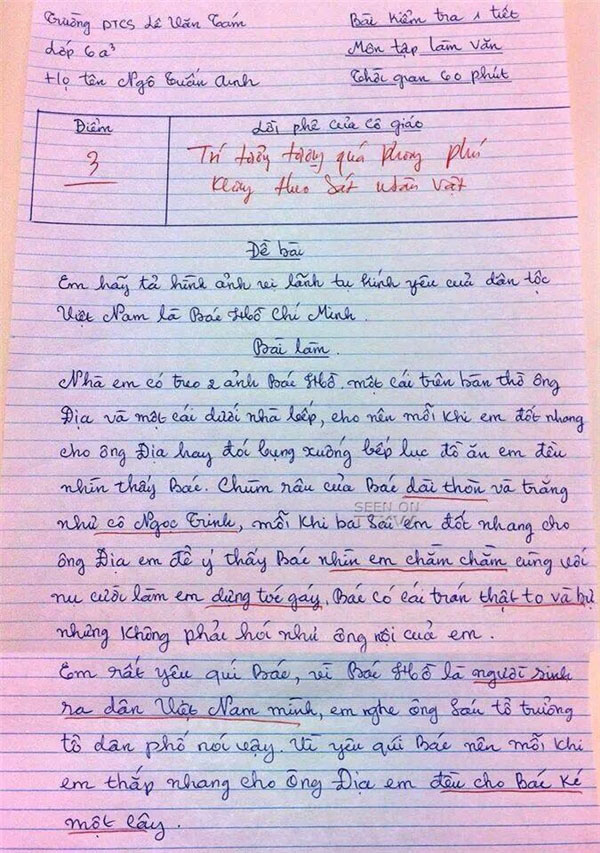 Trường PTCS Lê Văn Tám
Bài kiểm tra 1 tiết
Lớp 6a³
Môn tập làm văn
Họ tên Ngô Tuấn Anh
Thời gian 60 phút
Điểm
Lời phê của cô giáo
3
Trí tưởng tượng quá phong phú
không theo sát nhân vật
Đề bài
Em hãy tả hình ảnh vị lãnh tụ kính yêu của dân tộc
Việt Nam là Bác Hồ Chí Minh.
Bài làm.
Nhà em có treo 2 ảnh Bác Hồ. một cái trên bàn thờ ông
Địa và một cái dưới nhà bếp, cho nên mỗi khi em đốt nhang
cho ông Địa hay đói bụng xuống bếp lục đồ ăn em đều
nhìn thấy Bác. Chùm râu của Bác dài thòn và trắng
SEEN ON
như cô Ngọc Trinh, mỗi khi ba sai em đốt nhang cho
ông Địa em để ý thấy Bác nhìn em chằm chằm cùng với
nụ cười làm em dựng tóc gáy. Bác có cái trán thật to và bự
nhưng không phải hói như ông nội của em.
Em rất yêu quí Bác, vì Bác Hồ là người sinh
ra dân Việt Nam mình, em nghe ông Sáu tổ trưởng
tổ dân phố nói vậy. Vì yêu qúi Bác nên mỗi khi
em thắp nhang cho Ông Địa em đều cho Bác ké
một cây.